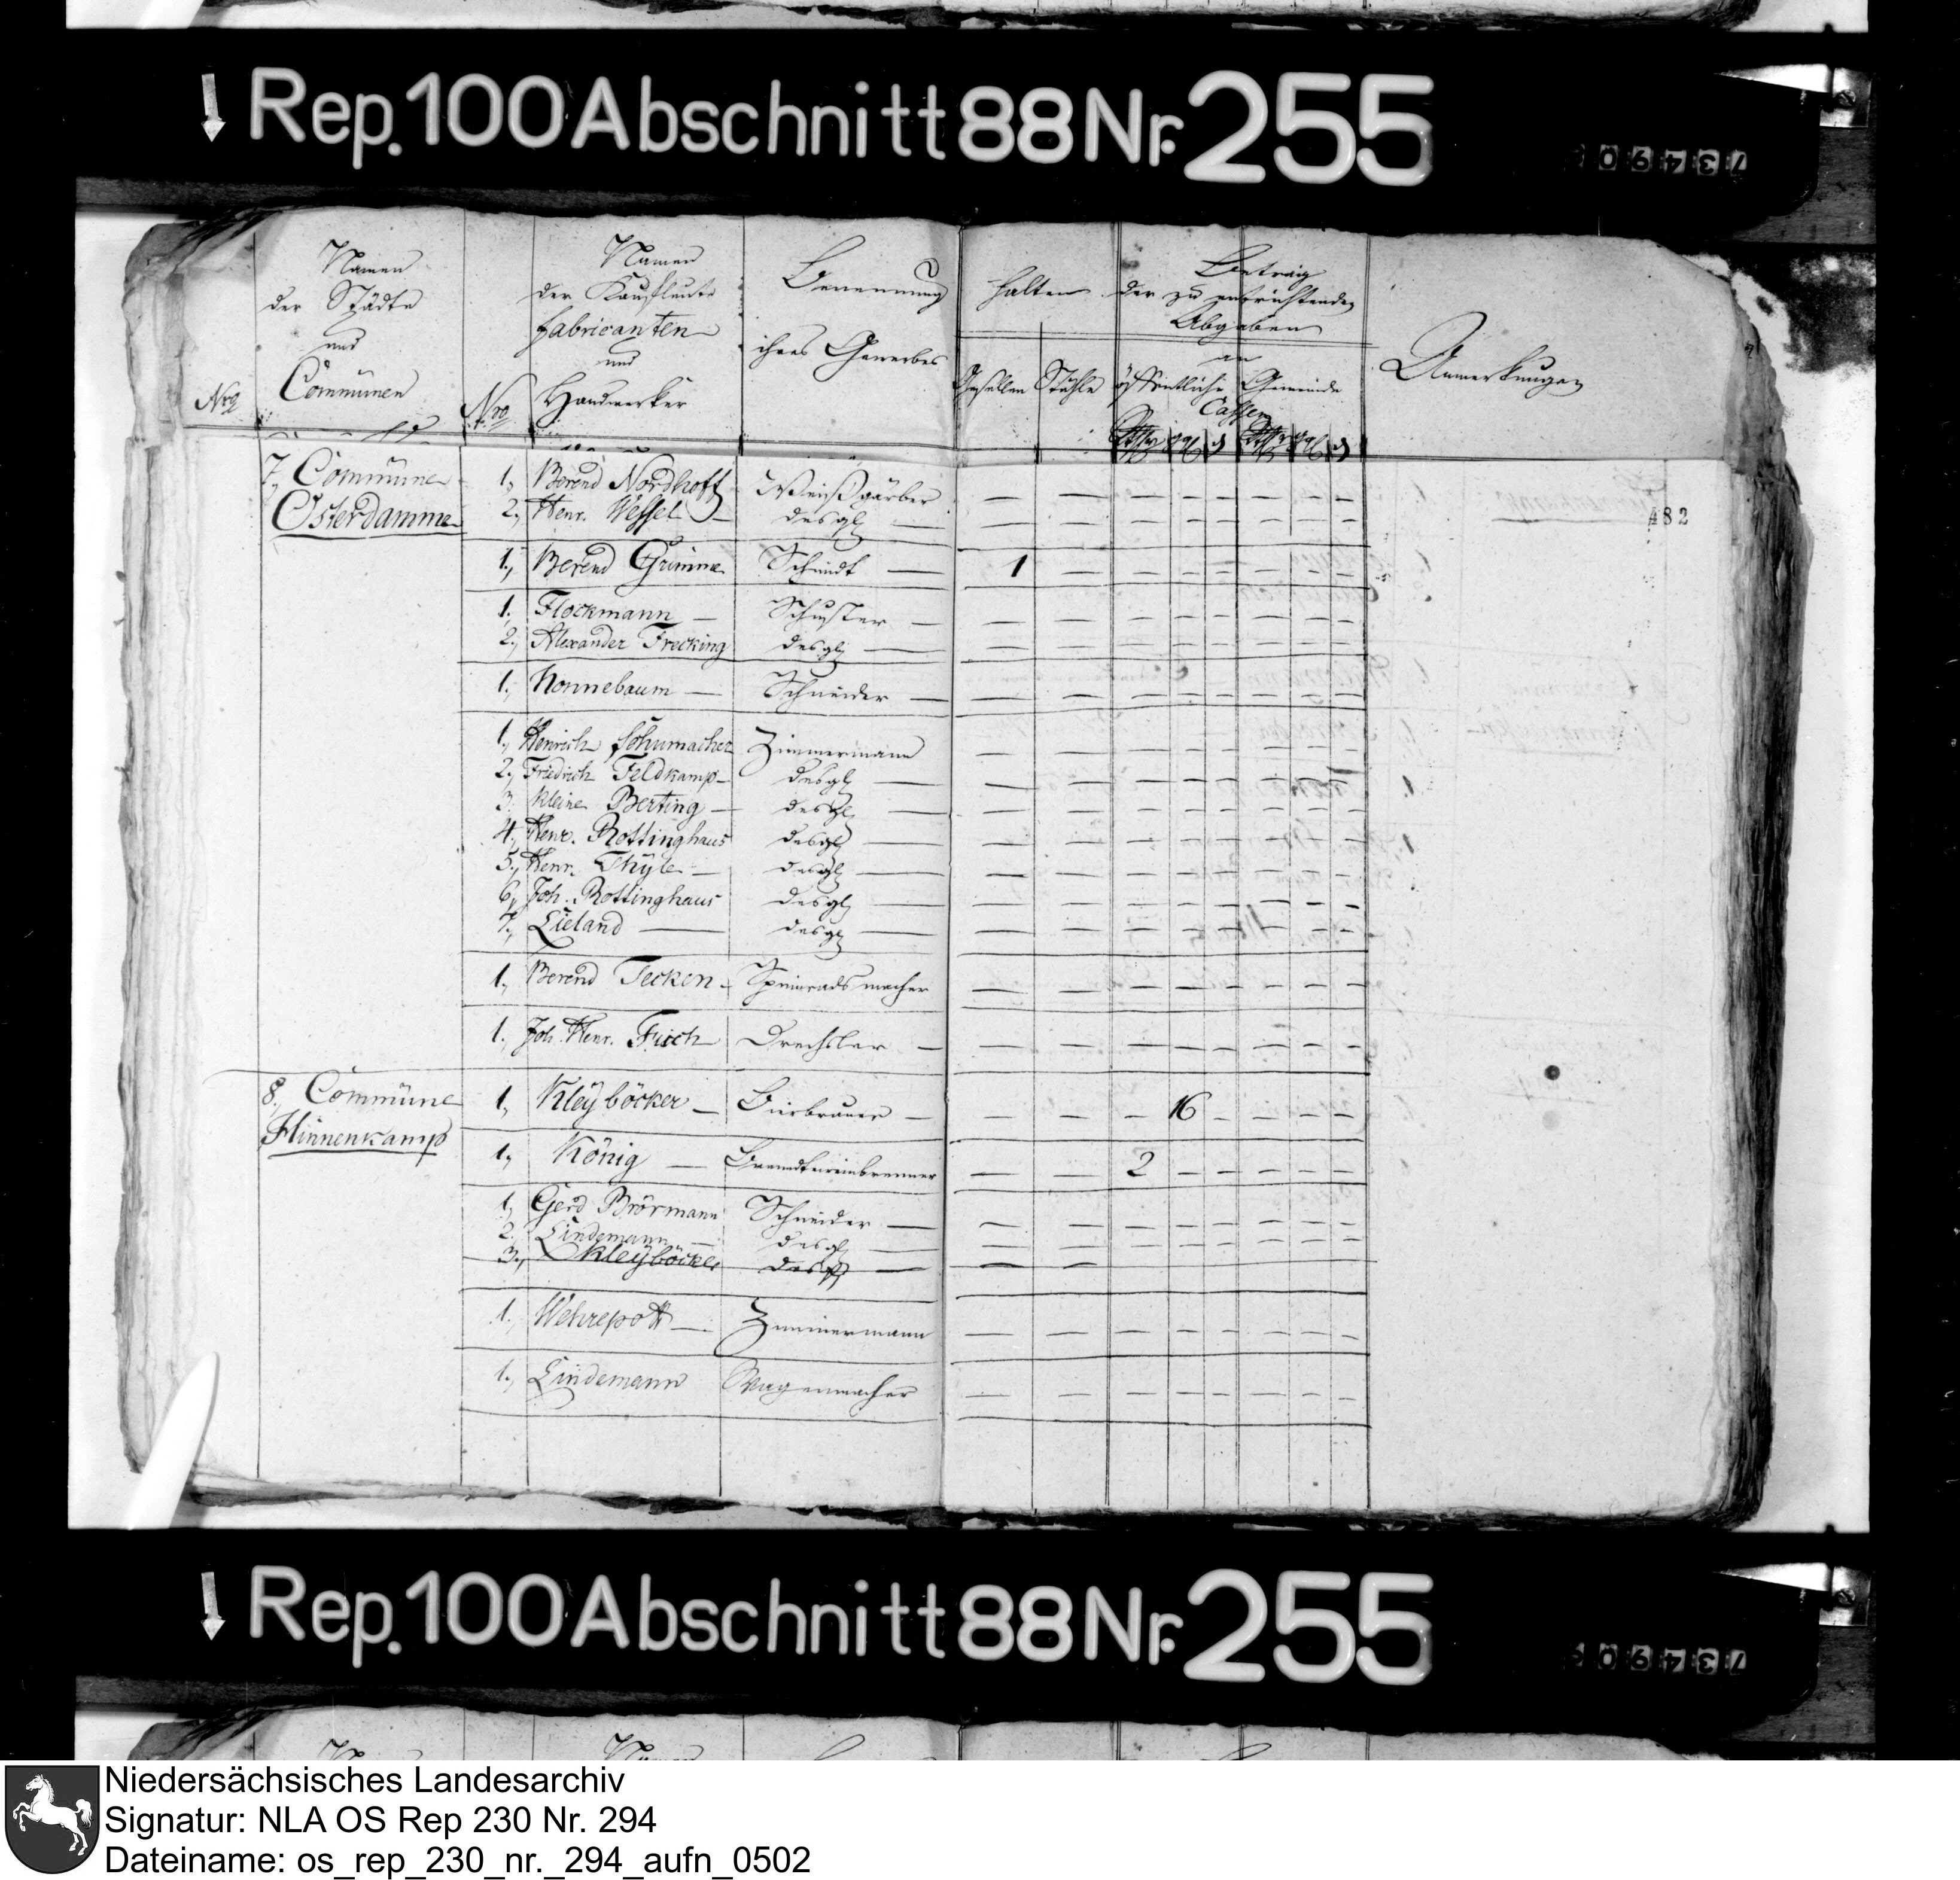 Rep. 100 Abschnitt 88 Nr. 255
734906
Nro
Namen
der Städte
und
Communen
Nro
Namen
der Kaufleute
Fabricanten
und
Handwerker
Benennung
ihres Gewerbes
halten
Gesellen Stühle
Betrag
der zu entrichtenden
Abgaben
an
öffentliche Gemeinde
Cassen
Anmerkungen
482
7, Commüne
Osterdamme
1, Berend Nordhoff Weißgärber — — — — — — — —
2, Henr. Wessel — desgl — — — — — — — — —
1, Berend Grimme Schmidt — 1 — — — — — — —
1, Flockmann — Schuster — — — — — — — — —
2, Alexander Frecking desgl — — — — — — — — —
1, Nonnebaum — Schneider — — — — — — — — —
1, Henrich Schumacher Zimmermann — — — — — — — —
2, Friedrich Feldkamp — desgl — — — — — — — — —
3, Kleine Berting — desgl — — — — — — — — —
4, Henr. Rottinghaus desgl — — — — — — — — —
5, Henr. Thÿle — desgl — — — — — — — — —
6, Joh. Rottinghaus desgl — — — — — — — — —
7, Lieland — desgl — — — — — — — — —
1, Berend Tecken — Spinnradsmacher — — — — — — — —
1, Joh. Henr. Fisch Drechsler — — — — — — — — —
8, Commüne
Hinnenkamp
1, Kleÿböcker — Bierbrauer — — — — 16 — — — —
1, König — Brandtweinbrenner — — 2 — — — — —
1, Gerd Brörmann Schneider — — — — — — — — —
2, Lindemann — desgl — — — — — — — — —
3, Kleÿböcker desgl — — —
1, Wehrepott — Zimmermann — — — — — — — —
1, Lindemann Wagenmacher — — — — — — — —
Rep. 100 Abschnitt 88 Nr. 255
734906
Niedersächsisches Landesarchiv
Signatur: NLA OS Rep 230 Nr. 294
Dateiname: os_rep_230_nr._294_aufn_0502